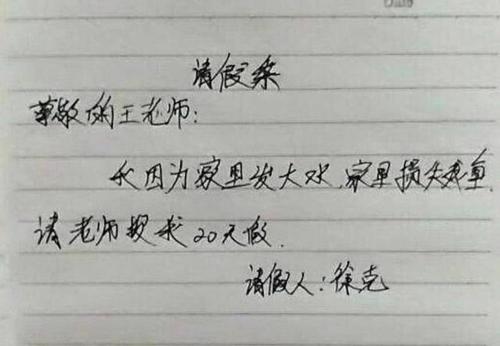 请假条
尊敬的王老师:
我因为家里发大水.家里损失残重
请老师授我20天假.
请假人:徐克